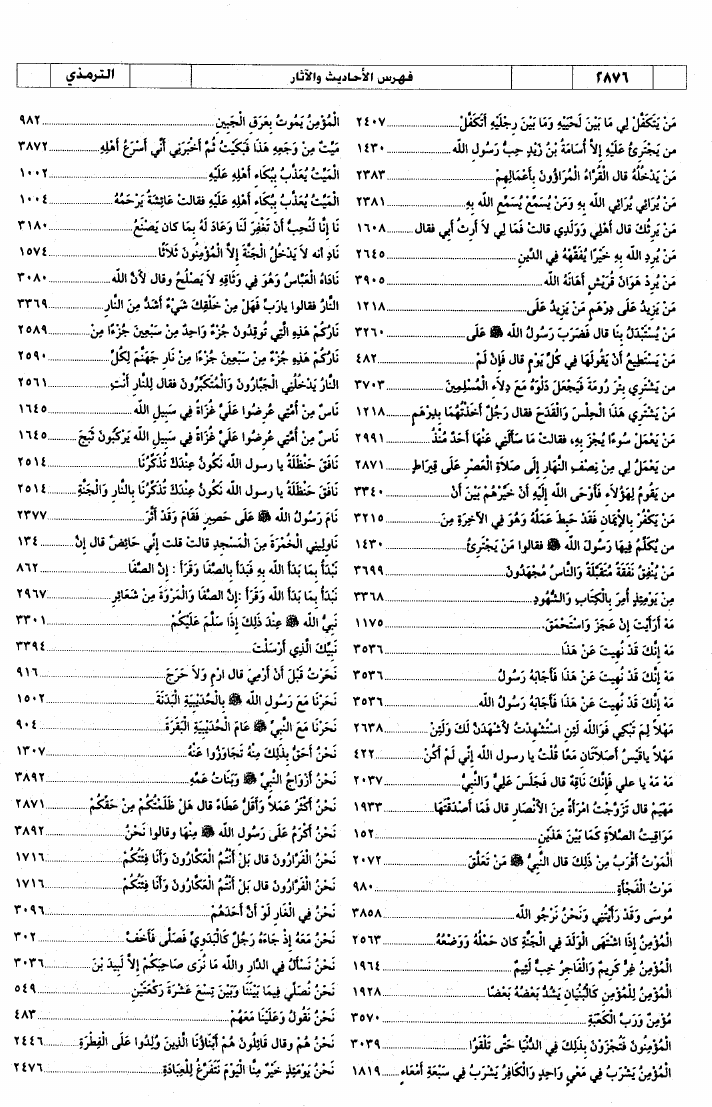 ٢٨٧٦
فهرس الأحاديث والآثار
الترمذي
مَنْ يَتَكَفَّلُ لِي مَا بَيْنَ لَحْيَيْهِ وَمَا بَيْنَ رِجْلَيْهِ أَتَكَفَّلُ ٢٤٠٧
من يَجْتَرِئُ عَلَيْهِ إلاَّ أُسَامَةُ بنُ زَيْدٍ حِبُّ رَسُولِ الله ١٤٣٠
مَنْ يَدْخُلُهُ قال القُرَّاءُ المُرَاؤُونَ بِأَعْمَالِهِمْ ٢٣٨٣
مَنْ يُرَائِي يُرَائِي الله بِهِ وَمَنْ يُسَمِّعْ يُسَمِّعِ الله بِهِ ٢٣٨١
مَنْ يَرِثُكَ قال أَهْلِي وَوَلَدِي قالت فَمَا لِي لاَ أَرِثُ أبي فقال ١٦٠٨
مَنْ يُرِدِ الله بِهِ خَيْرًا يُفَقِّهْهُ فِي الدِّينِ ٢٦٤٥
مَنْ يُرِدْ هَوَانَ قُرَيْشٍ أَهَانَهُ الله ٣٩٠٥
مَنْ يَزِيدُ عَلَى دِرْهَمٍ مَنْ يَزِيدُ عَلَى ١٢١٨
مَنْ يُسْتَبْدَلُ بِنَا قال فَضَرَبَ رَسُولُ الله ﷺ عَلَى ٣٢٦٠
مَنْ يَسْتَطِيعُ أَنْ يَقُولَهَا فِي كُلِّ يَوْمٍ قال فَإِنْ لَمْ ٤٨٢
من يَشْتَرِي بِئْرَ رُومَةَ فَيَجْعَلَ دَلْوَهُ مَعَ دِلاَءِ الْمُسْلِمِينَ ٣٧٠٣
مَنْ يَشْتَرِي هَذَا الْحِلْسَ وَالْقَدَحَ فقال رَجُلٌ أَخَذْتُهُمَا بِدِرْهَمٍ ١٢١٨
مَنْ يَعْمَلْ سُوءًا يُجْزَ بِهِ، فقالت مَا سَأَلَنِي عَنْهَا أَحَدٌ مُنْذُ ٢٩٩١
من يَعْمَلُ لِي مِنْ نِصْفِ النَّهَارِ إِلَى صَلاَةِ الْعَصْرِ عَلَى قِيرَاطٍ ٢٨٧١
من يَقُومُ لِهَؤُلاَءِ فَأَوْحَى الله إِلَيْهِ أَنْ خَيِّرْهُمْ بَيْنَ أَنْ ٣٣٤٠
مَنْ يَكْفُرْ بِالإِيمَانِ فَقَدْ حَبِطَ عَمَلُهُ وَهُوَ فِي الآخِرَةِ مِنَ ٣٢١٥
من يُكَلِّمُ فِيهَا رَسُولَ الله ﷺ فقالوا مَنْ يَجْتَرِئُ ١٤٣٠
مَنْ يُنْفِقُ نَفَقَةً مُتَقَبَّلَةً وَالنَّاسُ مُجْهَدُونَ ٣٦٩٩
مِنْ يَوْمِئِذٍ أُمِرَ بِالْكِتَابِ وَالشُّهُودِ ٣٣٦٨
مَهْ أَرَأَيْتَ إِنْ عَجَزَ وَاسْتَحْمَقَ ١١٧٥
مَهْ إِنَّكَ قَدْ نُهِيتَ عَنْ هَذَا ٣٥٣٦
مَهْ إِنَّكَ قَدْ نُهِيتَ عَنْ هَذَا فَأَجَابَهُ رَسُولُ ٣٥٣٦
مَهْ إِنَّكَ قَدْ نُهِيتَ عَنْ هَذَا فَأَجَابَهُ رَسُولُ الله ٣٥٣٦
مَهْلاً لِمَ تَبْكِي فَوَالله لَئِنِ اسْتُشْهِدْتُ لأَشْهَدَنَّ لَكَ وَلَئِنْ ٢٦٣٨
مَهْلاً يَاقَيْسُ أَصَلاَتَانِ مَعًا قُلْتُ يا رسول الله إِنِّي لَمْ أَكُنْ ٤٢٢
مَهْ مَهْ يا علي فَإِنَّكَ نَاقِهٌ قال فَجَلَسَ عَلِيٌّ وَالنَّبِيُّ ٢٠٣٧
مَهْيَمْ قال تَزَوَّجْتُ امْرَأَةً مِنَ الأَنْصَارِ قال فَمَا أَصْدَقْتَهَا ١٩٣٣
مَوَاقِيتُ الصَّلاَةِ كَمَا بَيْنَ هَذَيْنِ ١٥٢
المَوْتُ أَقْرَبُ مِنْ ذَلِكَ قال النَّبِيُّ ﷺ مَنْ تَعَلَّقَ ٢٠٧٢
مَوْتُ الْفَجْأَةِ ٩٨٠
مُوسَى وَقَدْ رَأَيْتُنِي وَنَحْنُ نَرْجُو الله ٣٨٥٨
المُؤْمِنُ إِذَا اشْتَهَى الْوَلَدَ فِي الْجَنَّةِ كان حَمْلُهُ وَوَضْعُهُ ٢٥٦٣
المُؤْمِنُ غِرٌّ كَرِيمٌ وَالْفَاجِرُ خِبٌّ لَئِيمٌ ١٩٦٤
المُؤْمِنُ لِلْمُؤْمِنِ كَالْبُنْيَانِ يَشُدُّ بَعْضُهُ بَعْضًا ١٩٢٨
مُؤْمِنٌ وَرَبِّ الْكَعْبَةِ ٣٥٧٠
المُؤْمِنُونَ فَتُجْزَوْنَ بِذَلِكَ فِي الدُّنْيَا حَتَّى تَلْقَوُا ٣٠٣٩
المُؤْمِنُ يَشْرَبُ فِي مَعْيٍ وَاحِدٍ وَالْكَافِرُ يَشْرَبُ فِي سَبْعَةِ أَمْعَاءٍ ١٨١٩
المُؤْمِنُ يَمُوتُ بِعَرَقِ الْجَبِينِ ٩٨٢
مَيِّتٌ مِنْ وَجَعِهِ هَذَا فَبَكَيْتُ ثُمَّ أَخْبَرَنِي أَنِّي أَسْرَعُ أَهْلِهِ ٣٨٧٢
المَيِّتُ يُعَذَّبُ بِبُكَاءِ أَهْلِهِ عَلَيْهِ ١٠٠٢
المَيِّتُ يُعَذَّبُ بِبُكَاءِ أَهْلِهِ عَلَيْهِ فقالت عَائِشَةُ يَرْحَمُهُ ١٠٠٤
نَا إِنَّا لَنُحِبُّ أَنْ تَغْفِرَ لَنَا وَعَادَ لَهُ بِمَا كان يَصْنَعُ ٣١٨٠
نَادِ أنه لاَ يَدْخُلُ الجَنَّةَ إِلاَّ الْمُؤْمِنُونَ ثَلاَثًا ١٥٧٤
نَادَاهُ الْعَبَّاسُ وَهُوَ فِي وَثَاقِهِ لاَ يَصْلُحُ وقال لأَنَّ الله ٣٠٨٠
النَّارُ فقالوا يارَبِّ فَهَلْ مِنْ خَلْقِكَ شَيْءٌ أَشَدُّ مِنَ النَّارِ ٣٣٦٩
نَارُكُمْ هَذِهِ الَّتِي تُوقِدُونَ جُزْءٌ وَاحِدٌ مِنْ سَبْعِينَ جُزْءًا مِنْ ٢٥٨٩
نَارُكُمْ هَذِهِ جُزْءٌ مِنْ سَبْعِينَ جُزْءًا مِنْ نَارِ جَهَنَّمَ لِكُلِّ ٢٥٩٠
النَّارُ يَدْخُلُنِي الْجَبَّارُونَ وَالْمُتَكَبِّرُونَ فقال لِلنَّارِ أَنْتِ ٢٥٦١
نَاسٌ مِنْ أُمَّتِي عُرِضُوا عَلَيَّ غُزَاةً فِي سَبِيلِ الله ١٦٤٥
نَاسٌ مِنْ أُمَّتِي عُرِضُوا عَلَيَّ غُزَاةً فِي سَبِيلِ الله يَرْكَبُونَ ثَبَجَ ١٦٤٥
نَافَقَ حَنْظَلَةُ يا رسول الله نَكُونُ عِنْدَكَ تُذَكِّرُنَا ٢٥١٤
نَافَقَ حَنْظَلَةُ يا رسول الله نَكُونُ عِنْدَكَ تُذَكِّرُنَا بِالنَّارِ وَالْجَنَّةِ ٢٥١٤
نَامَ رَسُولُ الله ﷺ عَلَى حَصِيرٍ فَقَامَ وَقَدْ أَثَّرَ ٢٣٧٧
نَاوِلِينِي الْخُمْرَةَ مِنَ الْمَسْجِدِ قالت قلت إِنِّي حَائِضٌ قال إِنَّ ١٣٤
نَبْدَأُ بِمَا بَدَأَ الله بِهِ فَبَدَأَ بِالصَّفَا وَقَرَأَ : إِنَّ الصَّفَا ٨٦٢
نَبْدَأُ بِمَا بَدَأَ الله وَقَرَأَ :إِنَّ الصَّفَا وَالْمَرْوَةَ مِنْ شَعَائِرِ ٢٩٦٧
نَبِيُّ الله ﷺ عِنْدَ ذَلِكَ إِذَا سَلَّمَ عَلَيْكُمْ ٣٣٠١
نَبِيِّكَ الَّذِي أَرْسَلْتَ ٣٣٩٤
نَحَرْتُ قَبْلَ أَنْ أَرْمِيَ قال ارْمِ وَلاَ حَرَجَ ٩١٦
نَحَرْنَا مَعَ رَسُولِ الله ﷺ بِالْحُدَيْبِيَةِ الْبَدَنَةَ ١٥٠٢
نَحَرْنَا مَعَ النَّبِيِّ ﷺ عَامَ الْحُدَيْبِيَةِ الْبَقَرَةَ ٩٠٤
نَحْنُ أَحَقُّ بِذَلِكَ مِنْهُ تَجَاوَزُوا عَنْهُ ١٣٠٧
نَحْنُ أَزْوَاجُ النَّبِيِّ ﷺ وَبَنَاتُ عَمِّهِ ٣٨٩٢
نَحْنُ أَكْثَرُ عَمَلاً وَأَقَلُّ عَطَاءً قال هَلْ ظَلَمْتُكُمْ مِنْ حَقِّكُمْ ٢٨٧١
نَحْنُ أَكْرَمُ عَلَى رَسُولِ الله ﷺ مِنْهَا وقالوا نَحْنُ ٣٨٩٢
نَحْنُ الْفَرَّارُونَ قال بَلْ أَنْتُمُ الْعَكَّارُونَ وَأَنَا فِئَتُكُمْ ١٧١٦
نَحْنُ الْفَرَّارُونَ قال بَلْ أَنْتُمُ الْعَكَّارُونَ وَأَنَا فِئَتُكُمْ ١٧١٦
نَحْنُ فِي الْغَارِ لَوْ أَنَّ أَحَدَهُمْ ٣٠٩٦
نَحْنُ مَعَهُ إِذْ جَاءَهُ رَجُلٌ كَالْبَدَوِيِّ فَصَلَّى فَأَخَفَّ ٣٠٢
نَحْنُ نَسْأَلُ فِي الدَّارِ والله مَا نُرَى صَاحِبَكُمْ إِلاَّ لَبِيدَ بْنَ ٣٠٣٦
نَحْنُ نُصَلِّي فِيمَا بَيْنَنَا وَبَيْنَ تِسْعَ عَشْرَةَ رَكْعَتَيْنِ ٥٤٩
نَحْنُ نَقُولُ وَعَلَيْنَا مَعَهُمْ ٤٨٣
نَحْنُ هُمْ وقال قَائِلُونَ هُمْ أَبْنَاؤُنَا الَّذِينَ وُلِدُوا عَلَى الْفِطْرَةِ ٢٤٤٦
نَحْنُ يَوْمَئِذٍ خَيْرٌ مِنَّا الْيَوْمَ نَتَفَرَّغُ لِلْعِبَادَةِ ٢٤٧٦